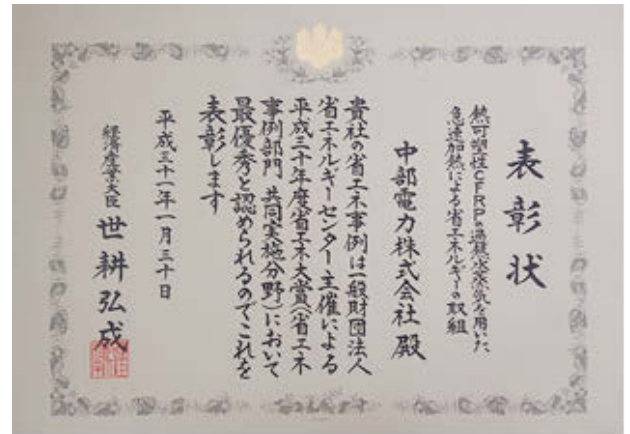 表彰状
熱可塑性CFRPの過熱水蒸気を用いた
急速加熱による省エネルギーの取組
中部電力株式会社殿
貴社の省エネ事例は一般財団法人
省エネルギーセンター主催による
平成三十年度省エネ大賞(省エネ
事例部門 共同実施分野)において
最優秀と認められるのでこれを
表彰します
平成三十一年一月三十日
経済産業大臣 世耕弘成